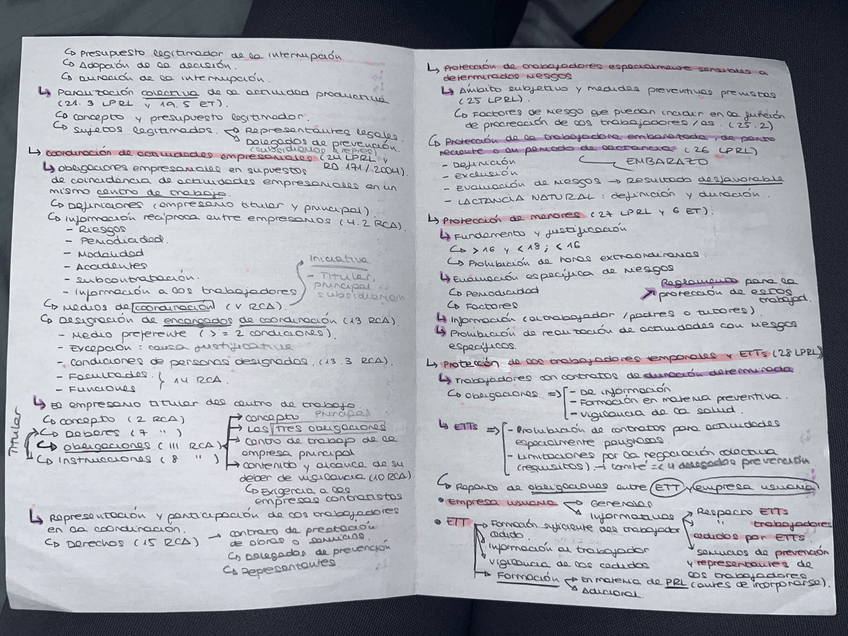 ↳ Presupuesto legitimador de la interrupción
↳ Adopción de la decisión.
↳ Duración de la interrupción.
↳ Paralización colectiva de la actividad productiva
(21.3 LPRL y 19.5 ET).
↳ concepto y presupuesto legitimador.
↳ Sujetos legitimados. → Representantes legales.
Delegados de prevención.
↳ coordinación de actividades empresariales (24 LPRL y
RD 171/2004).
↳ obligaciones empresariales en supuestos
de coincidencia de actividades empresariales en un
mismo centro de trabajo
↳ Definiciones (empresario titular y principal)
↳ Información recíproca entre empresarios (4.2 RCA)
- Riesgos
- Periodicidad.
- Modalidad
- Accidentes
- subcontratación.
- Información a los trabajadores
Iniciativa
- Titular,
principal
subsidiariam
↳ Medios de coordinación (V RCA)
↳ Designación de encargados de coordinación (13 RCA).
- Medio preferente (>= 2 condiciones).
- Excepción: causa justificativa
- Condiciones de personas designados. (13.3 RCA)
- Facultades
- Funciones } 14 RCA.
↳ El empresario titular del centro de trabajo.
Titular
↳ concepto (2 RCA)
↳ Deberes (7 ")
↳ obligaciones (III RCA)
↳ Instrucciones (8 ")
→ concepto Principal
→ Las TRES obligaciones
→ Centro de trabajo de la
empresa principal
→ contenido y alcance de su
deber de vigilancia (10 RCA)
↳ Exigencia a las
empresas contratistas
↳ Representación y participación de los trabajadores
en la coordinación.
↳ Derechos (15 RCA) → contrato de prestación
de obras o servicios
↳ Delegados de prevención
↳ Representantes
↳ Protección de trabajadores especialmente sensibles a
determinados riesgos
↳ Ámbito subjetivo y medidas preventivas previstas
(25 LPRL).
↳ Factores de riesgo que puedan incidir en la función
de procreación de los trabajadores/as. (25.2)
↳ Protección de la trabajadora embarazada, de parto
reciente o en periodo de lactancia (26 LPRL)
- Definición
- Exclusión
EMBARAZO
- Evaluación de riesgos → Resultado desfavorable
- LACTANCIA NATURAL: definición y duración.
↳ Protección de menores (27 LPRL y 6 ET).
↳ Fundamento y justificación
↳ > 16 y < 18 ; < 16
↳ Prohibición de horas extraordinarias
↳ Evaluación específica de riesgos
↳ Periodicidad
↳ Factores
Reglamento para la
protección de estos
trabajad.
↳ Información (al trabajador / padres o tutores).
↳ Prohibición de realización de actividades con riesgos
específicos.
↳ Protección de los trabajadores temporales y ETTs (28 LPRL)
↳ Trabajadores con contratos de duración determinada
↳ Obligaciones ⇒ - De información
- Formación en materia preventiva.
- Vigilancia de la salud.
↳ ETTs ⇒ - Prohibición de contratos para actividades
especialmente peligrosas
- Limitaciones por la negociación colectiva
(requisitos) → comité =< 4 delegados prevención
↳ Reparto de obligaciones entre ETT y empresa usuaria
• Empresa usuaria → Generales
Informativas → Respecto ETTs
→ " trabajadores
cedidos por ETTs
→ servicios de prevención
y representantes de
los trabajadores
• ETT → Formación suficiente del trabajador
cedido.
→ Información al trabajador
→ Vigilancia de los cedidos
→ Formación → En materia de PRL (antes de incorporarse).
→ Adicional